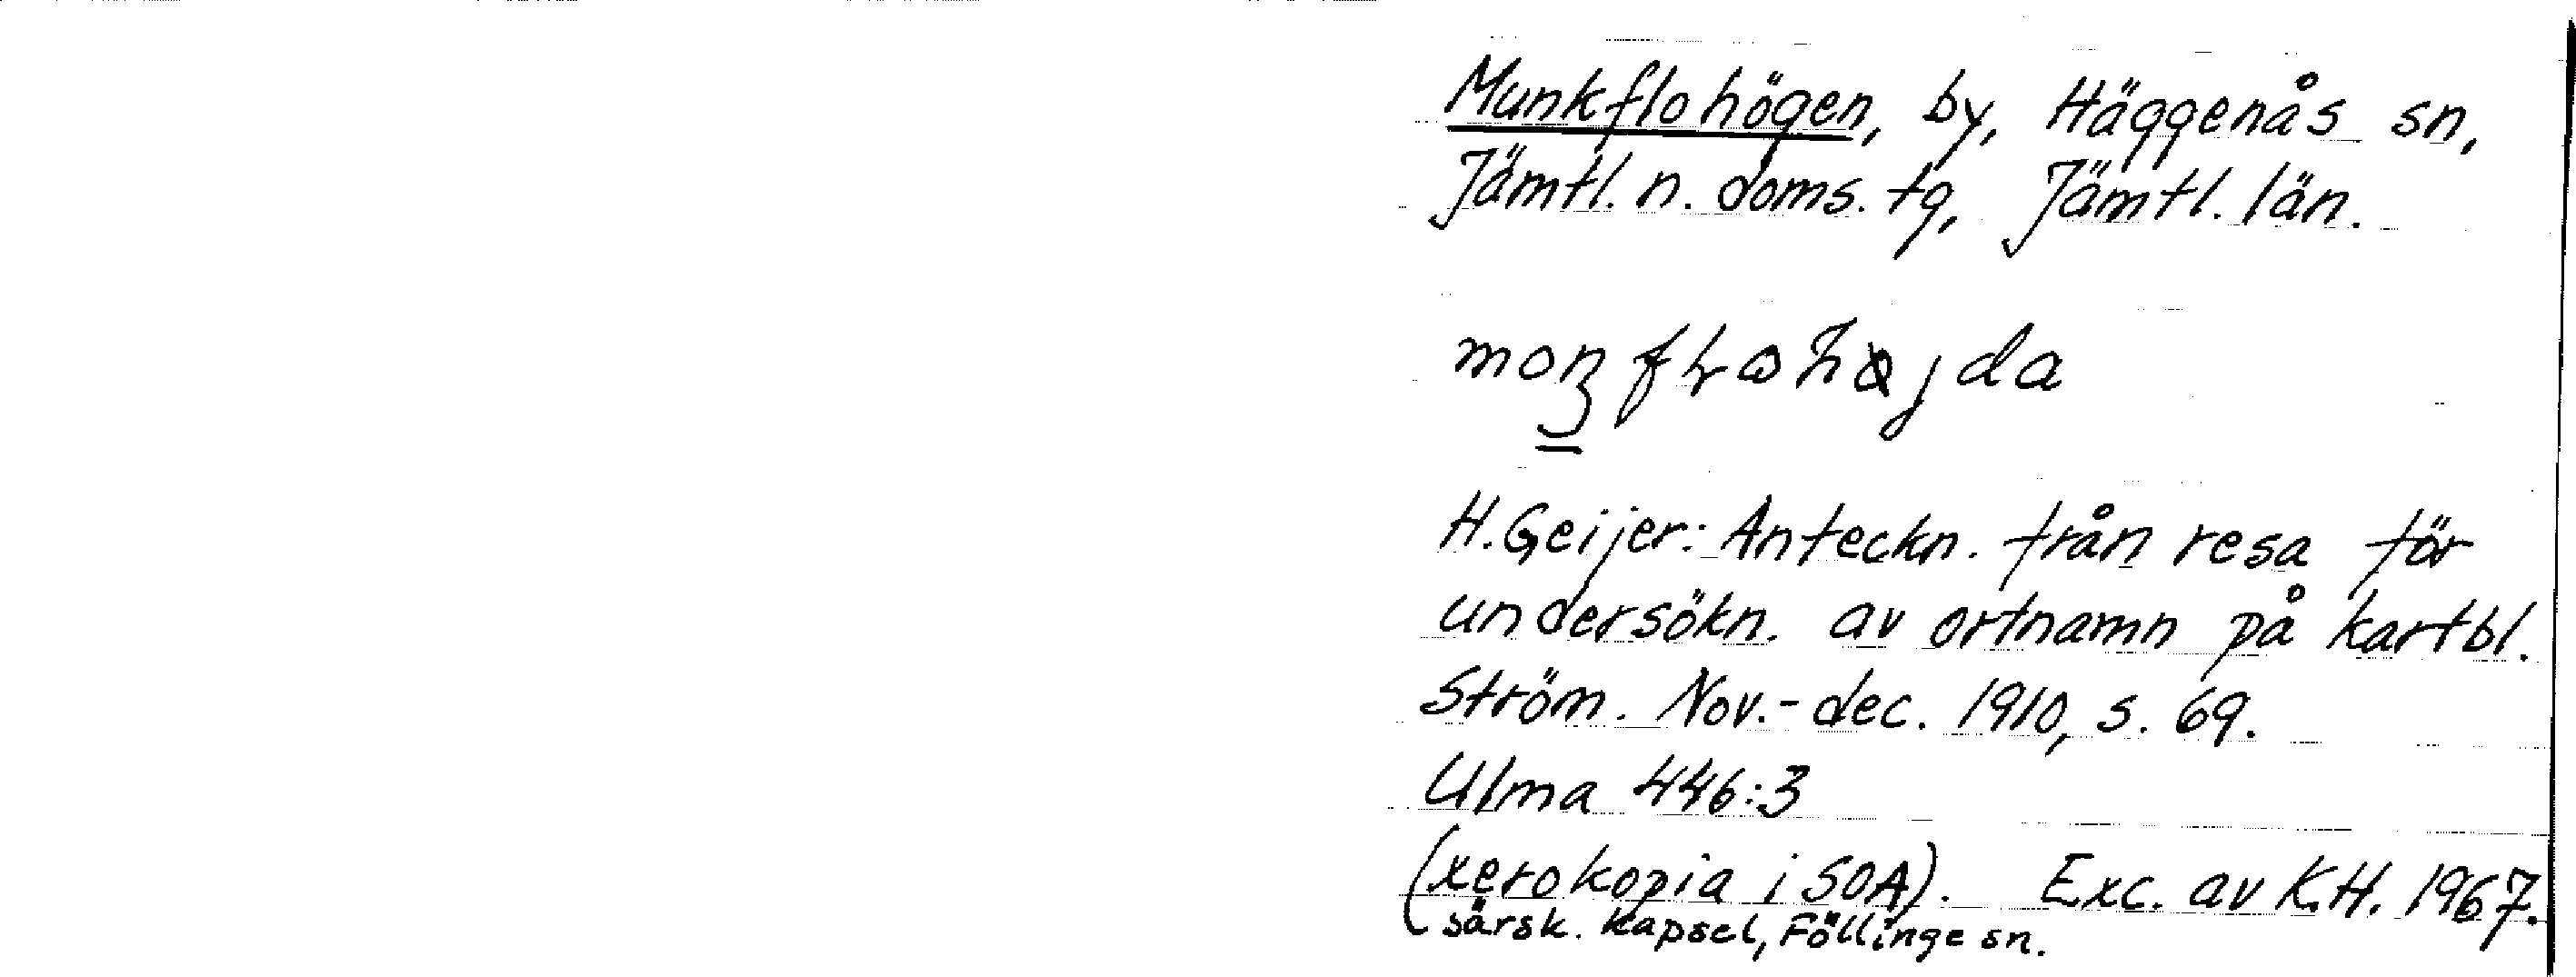 Munkflohögen, by, Häggenås sn,
Jämtl. n. doms. tg, Jämtl. län.
H. Geijer: Anteckn. från resa för
undersökn. av ortnamn på kartbl.
Ström. Nov.-dec. 1910, s. 69.
Ulma 446:3
(xerokopia i SOA). Exc. av K.H. 1967.
särsk. kapsel, Föllinge sn.